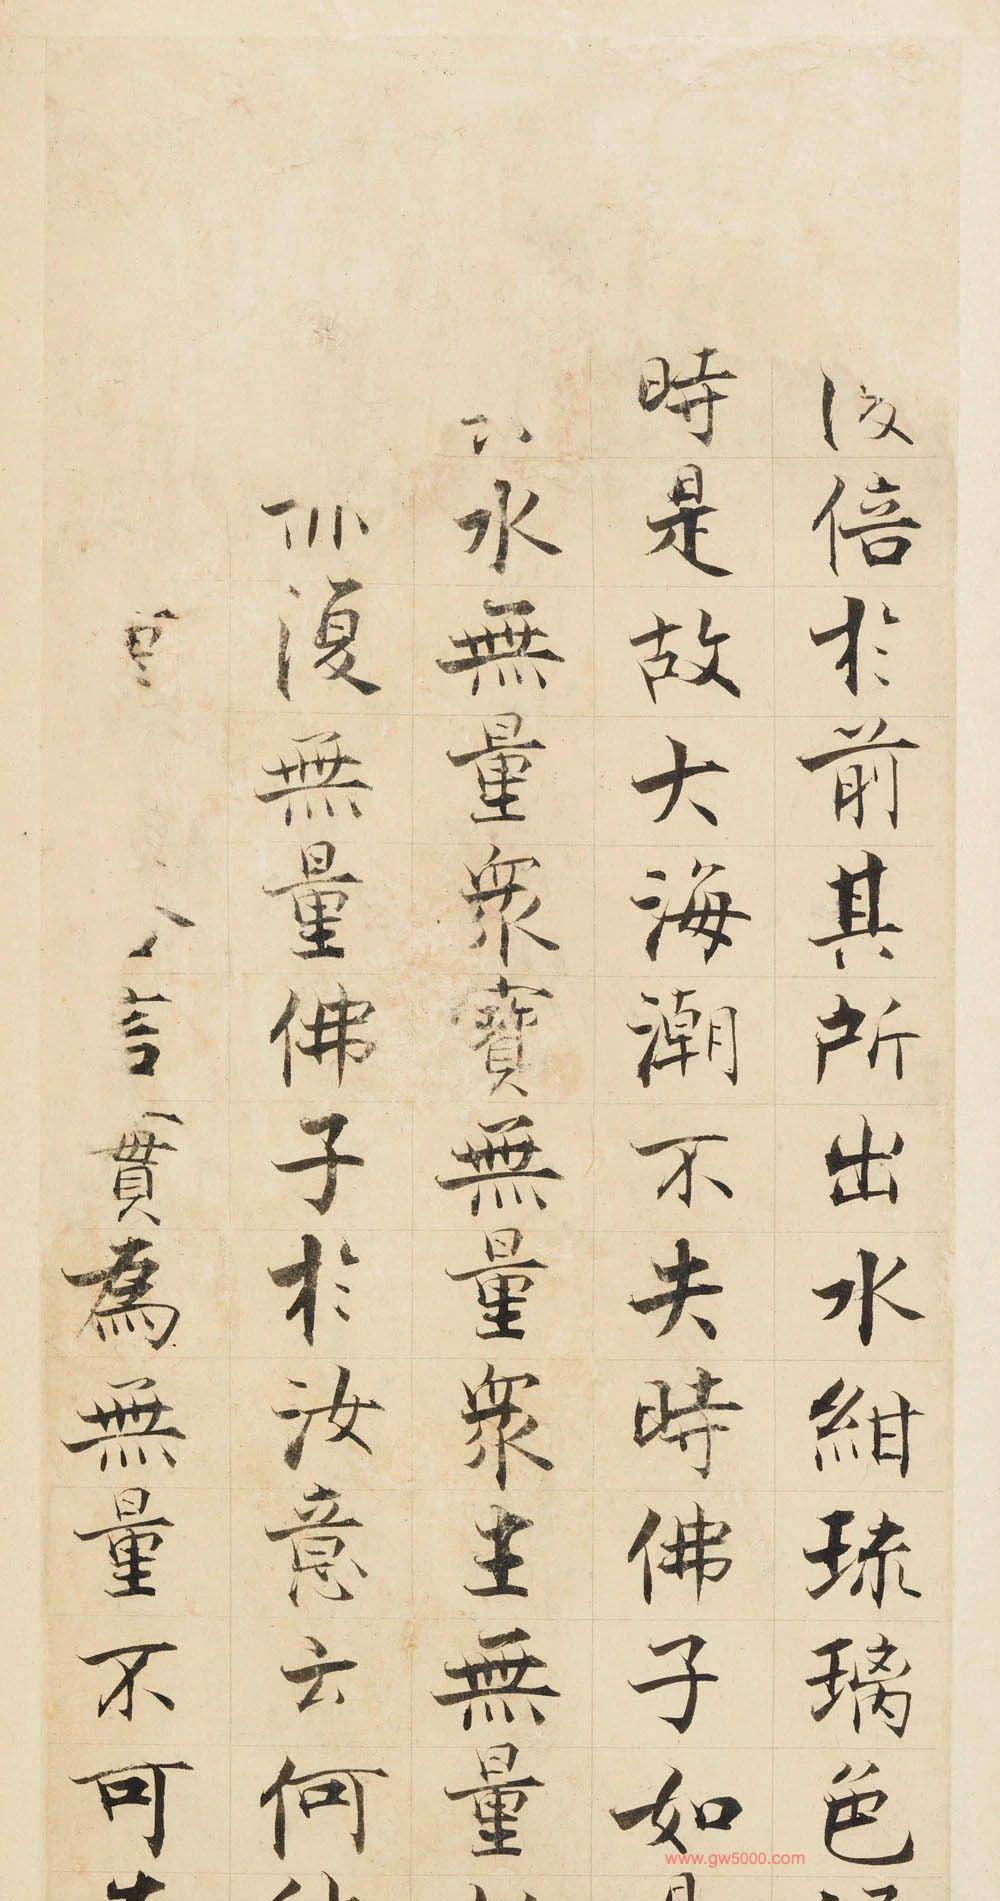 後倍於前其所出水紺琉璃色
時是故大海潮不失時佛子如
水無量眾寶無量眾生無量
亦復無量佛子於汝意云何
言實為無量不可
www.gw5000.com